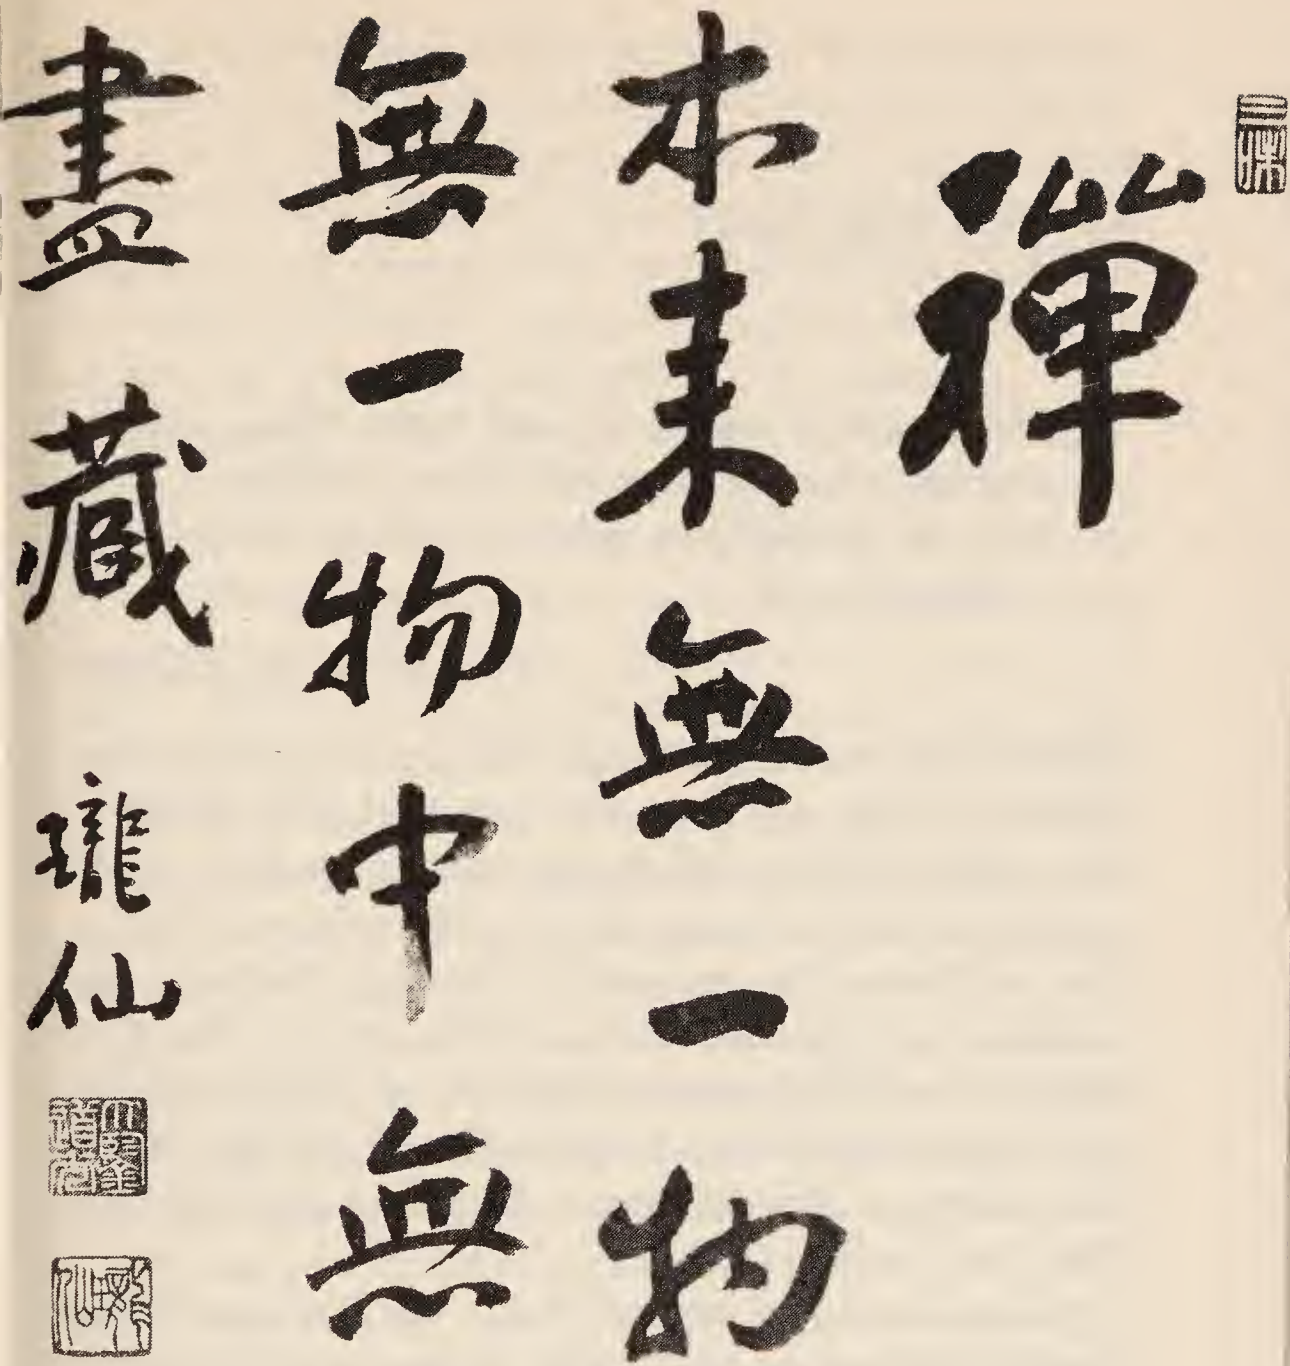 禪
本来無一物
無一物中無
盡藏
瓏仙
三昧